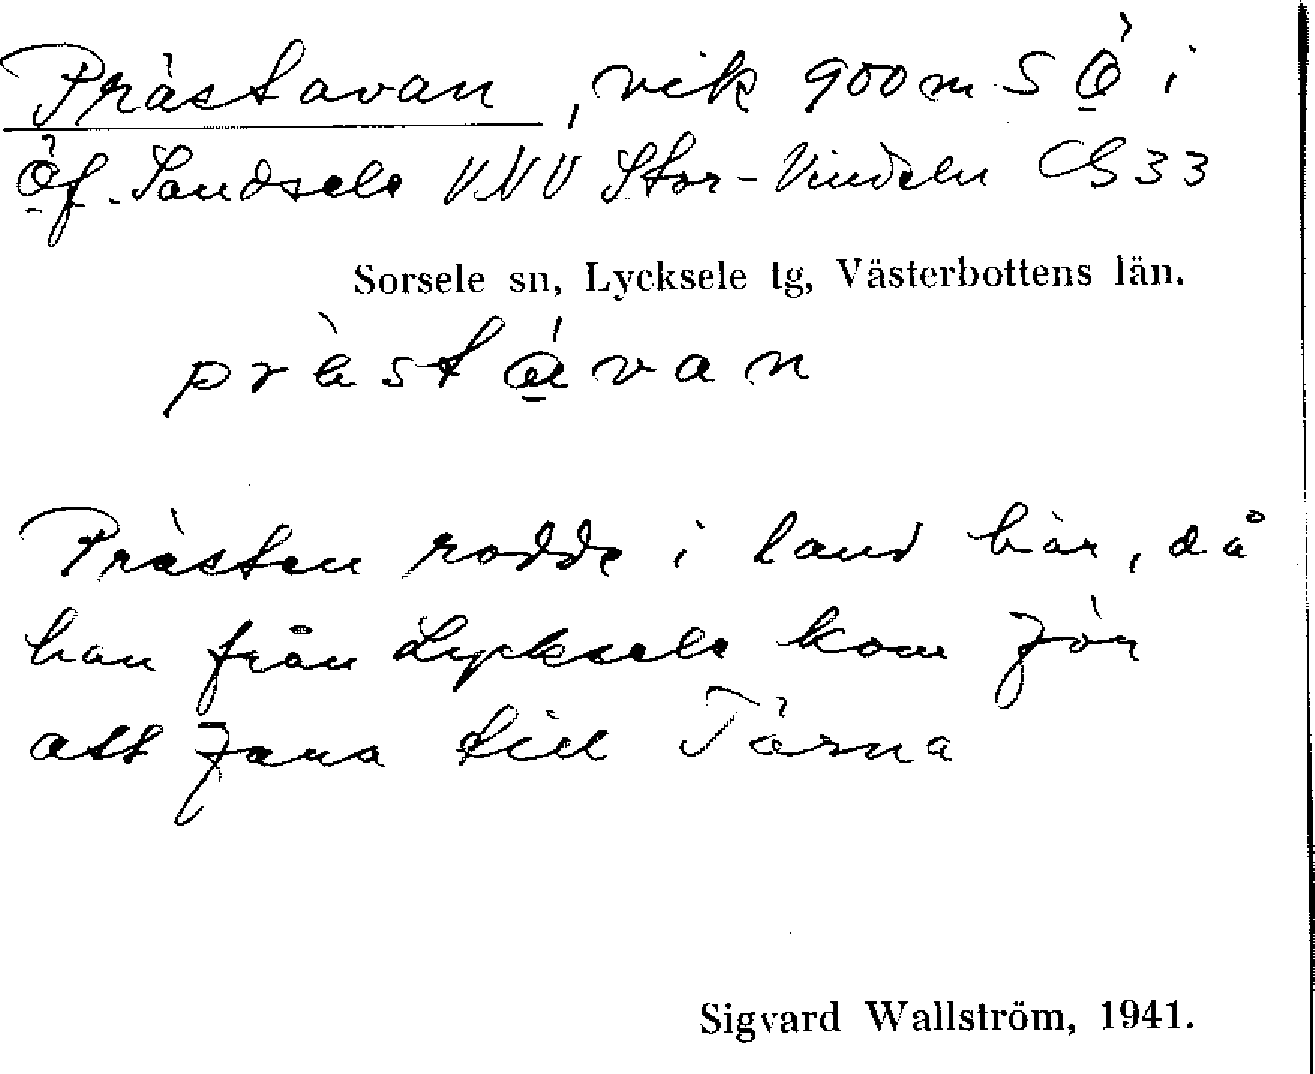 Prästavan, vik 900 m SÖ i
Öf. Sandsele VNV Stor-Vindeln CG 33
Sorsele sn, Lycksele tg, Västerbottens län.
prästávan
Prästen rodde i land här, då
han från Lycksele kom för
att fara till Tärna
Sigvard Wallström, 1941.